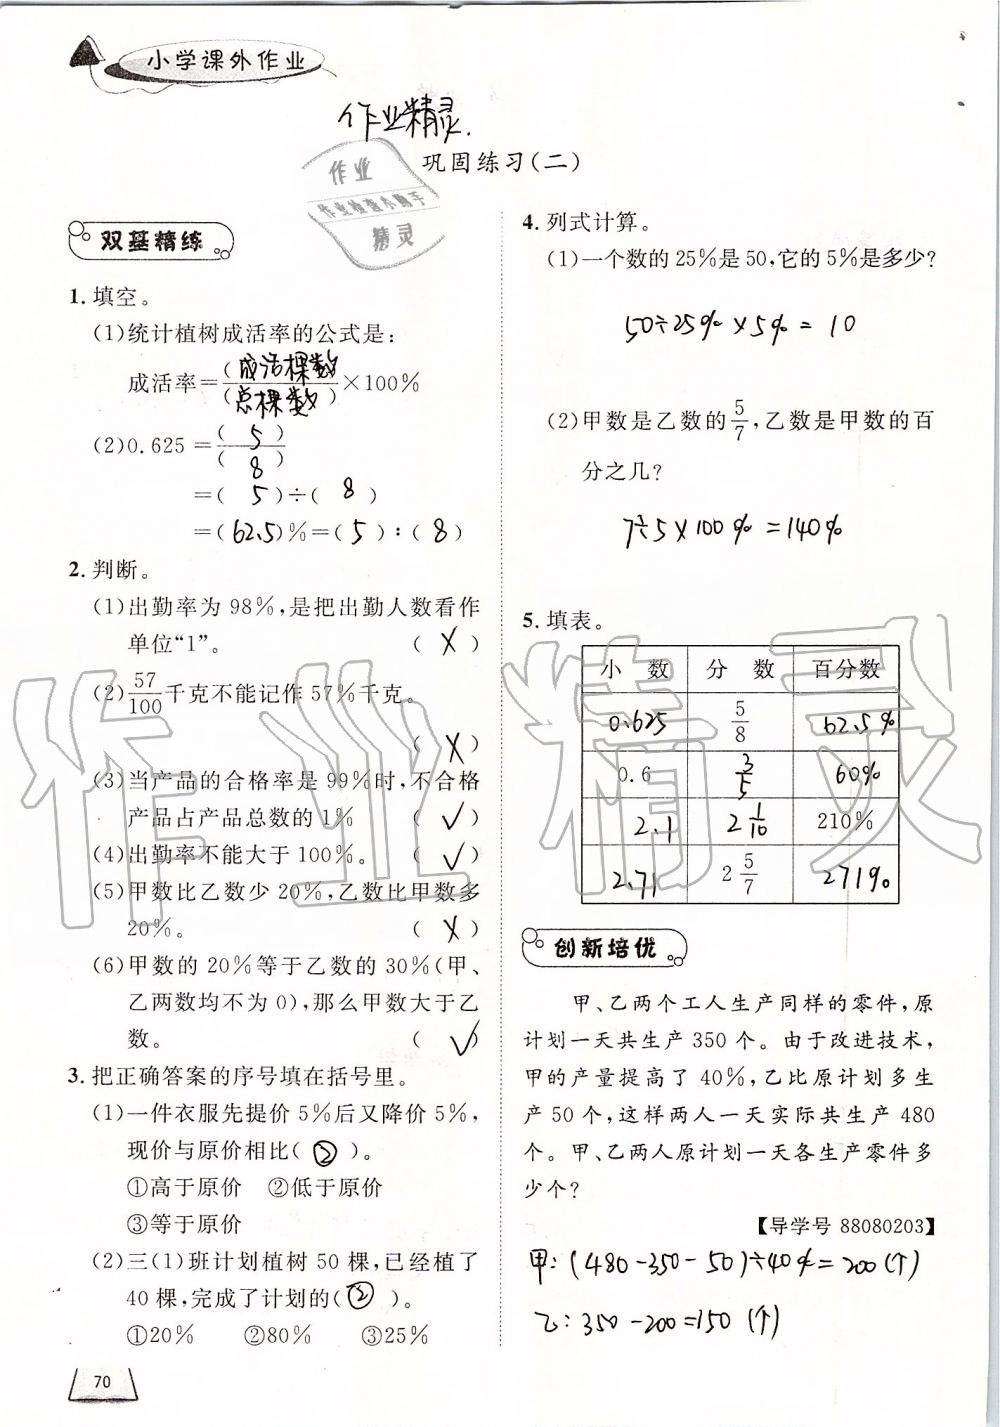 小学课外作业
作业精灵.
作业
作业检查小助手
精灵
巩固练习(二)
双基精练
1. 填空。
(1)统计植树成活率的公式是:
成活率=(成活棵数)/(总棵数)×100%
(2)0.625 =( 5 )/( 8 )
=( 5 )÷( 8 )
=(62.5)%=( 5 ):( 8 )
2. 判断。
(1)出勤率为 98%,是把出勤人数看作
单位“1”。 ( X )
(2)57/100千克不能记作 57%千克。
( X )
(3)当产品的合格率是 99%时,不合格
产品占产品总数的 1% ( √ )
(4)出勤率不能大于 100%。 ( √ )
(5)甲数比乙数少 20%,乙数比甲数多
20%。 ( X )
(6)甲数的 20%等于乙数的 30%(甲、
乙两数均不为 0),那么甲数大于乙
数。 ( √ )
3. 把正确答案的序号填在括号里。
(1)一件衣服先提价 5%后又降价 5%,
现价与原价相比( ② )。
①高于原价 ②低于原价
③等于原价
(2)三(1)班计划植树 50 棵,已经植了
40 棵,完成了计划的( ② )。
①20% ②80% ③25%
70
4. 列式计算。
(1)一个数的 25%是 50,它的 5%是多少?
50÷25%×5%=10
(2)甲数是乙数的5/7,乙数是甲数的百
分之几?
7÷5×100%=140%
5. 填表。
小 数 分 数 百分数
0.625 5/8 62.5%
0.6 3/5 60%
2.1 2 1/10 210%
2.71 2 5/7 271%
创新培优
甲、乙两个工人生产同样的零件,原
计划一天共生产 350 个。由于改进技术,
甲的产量提高了 40%,乙比原计划多生
产 50 个,这样两人一天实际共生产 480
个。甲、乙两人原计划一天各生产零件多
少个?
【导学号 88080203】
甲:(480-350-50)÷40%=200(个)
乙:350-200=150(个)
作业精灵